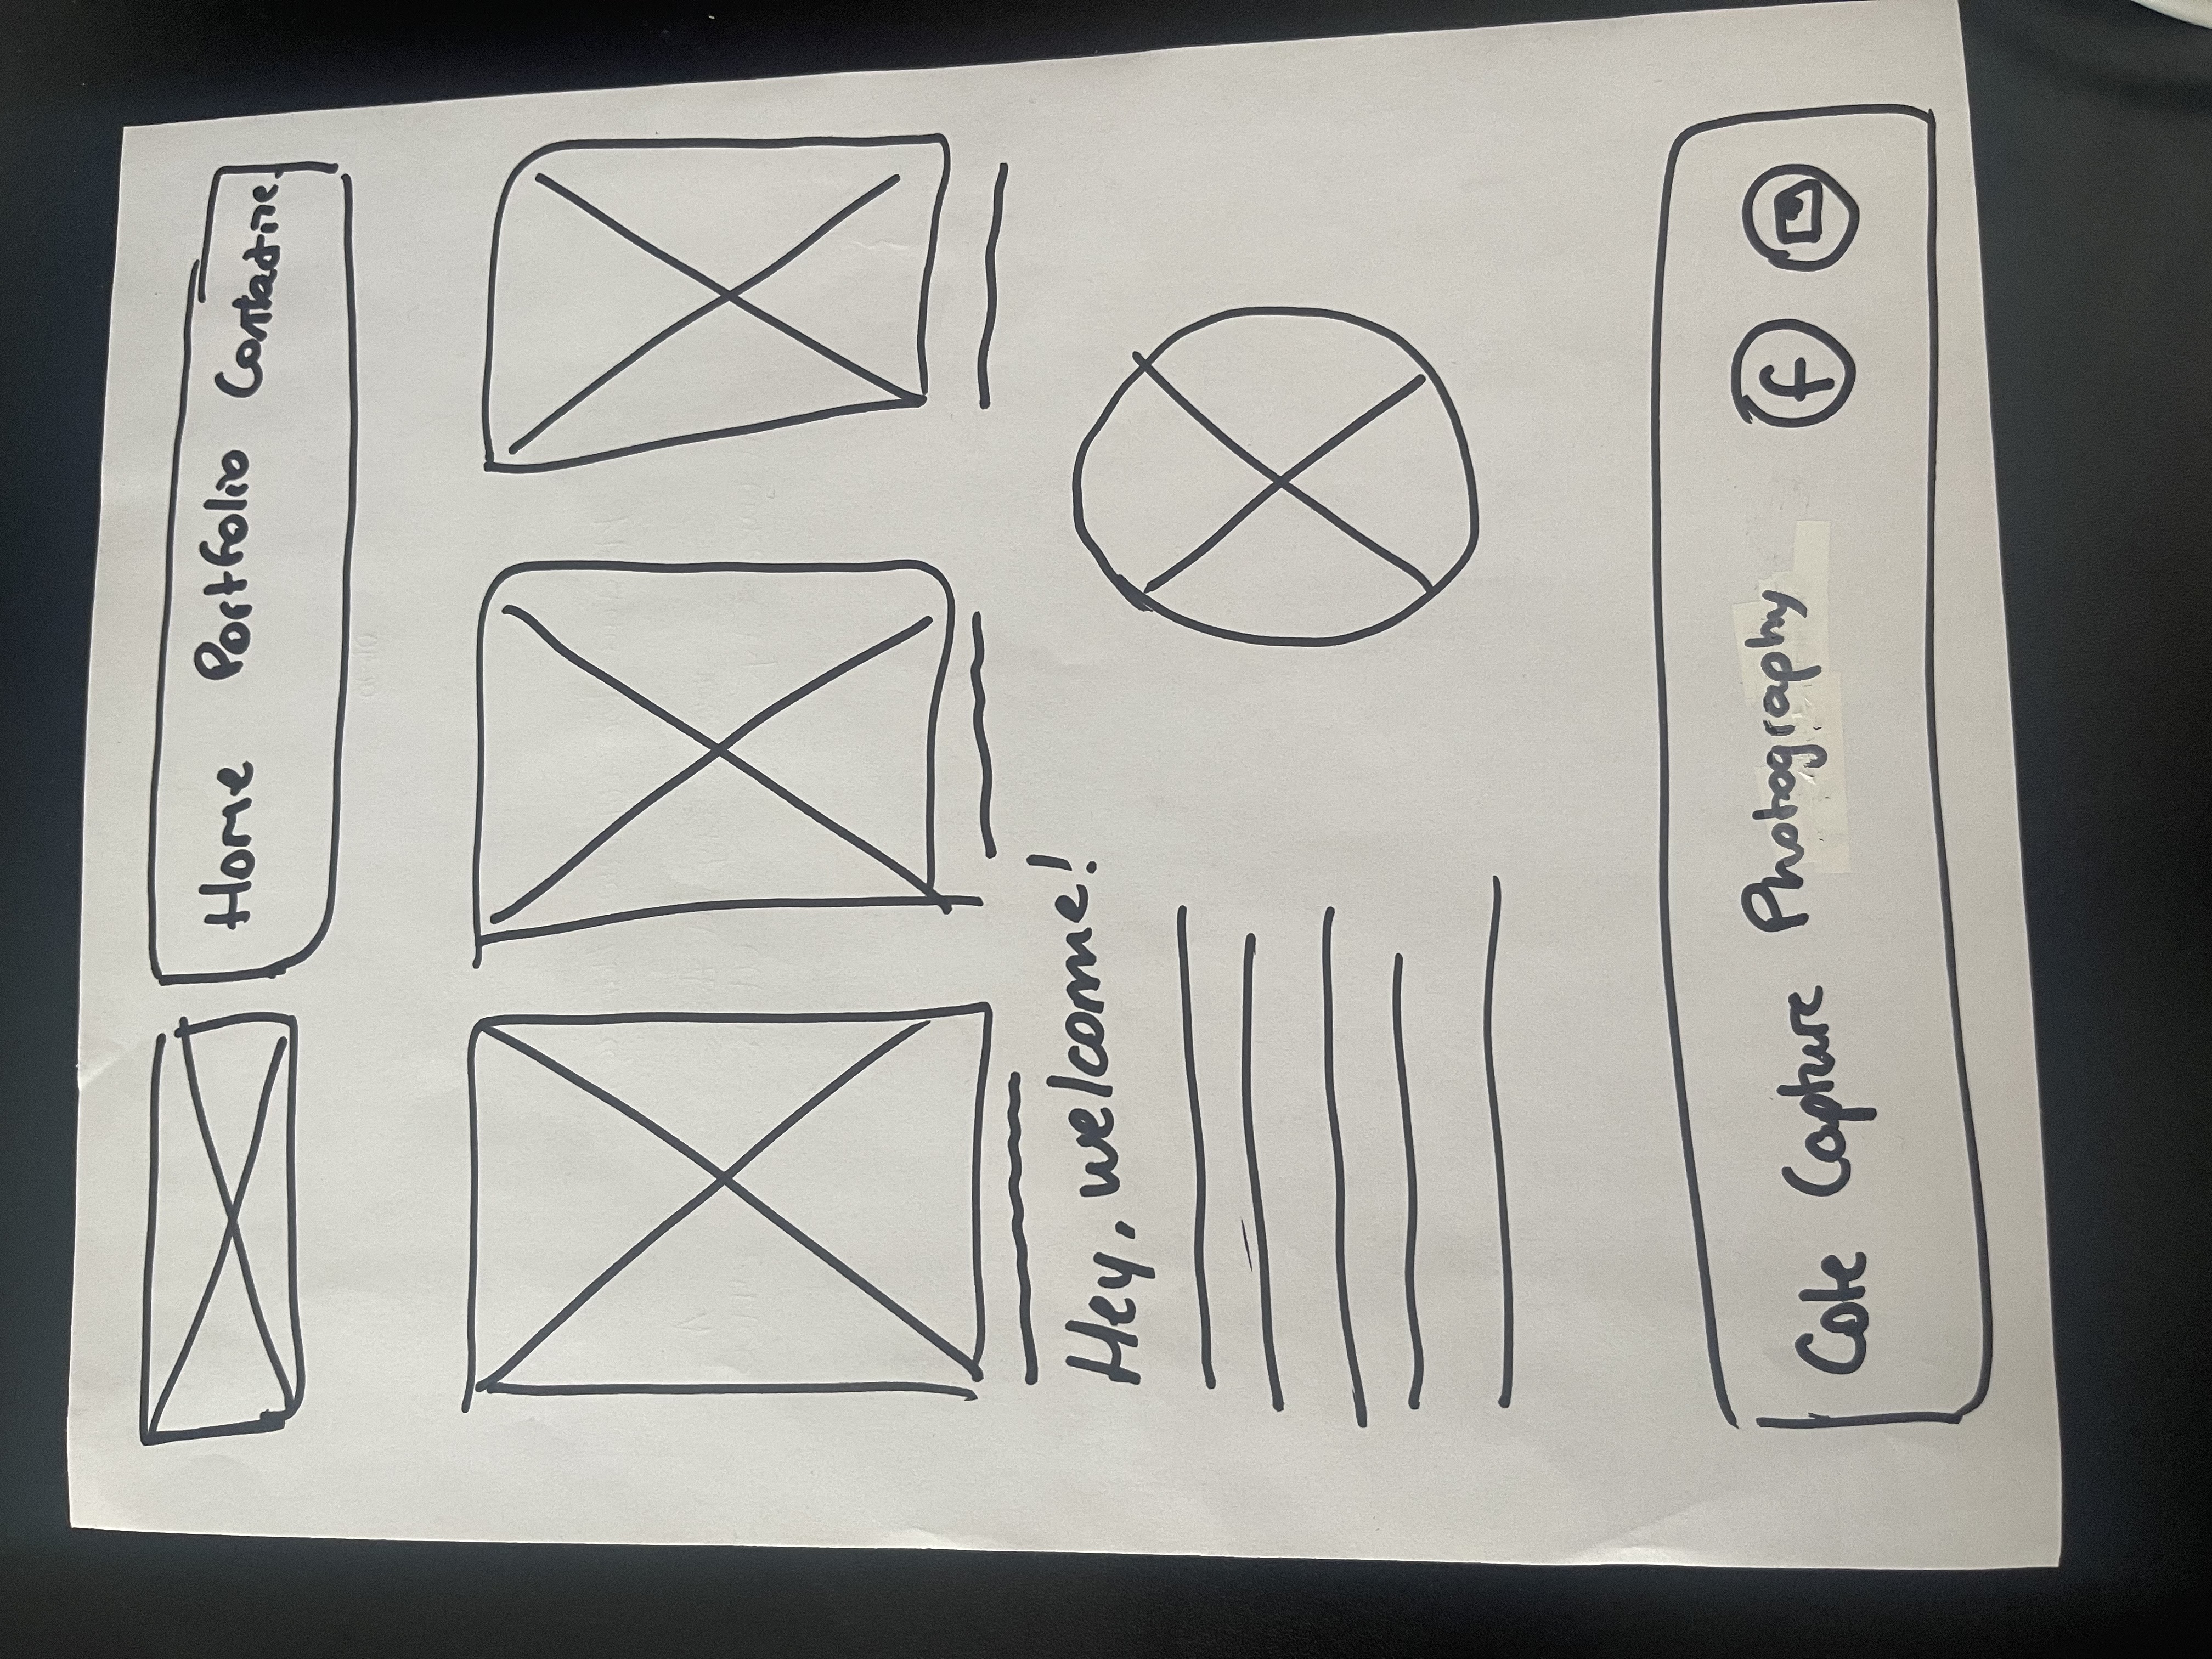 Home Portfolio Contact me.
Hey, welcome!
Cote Capture Photography f